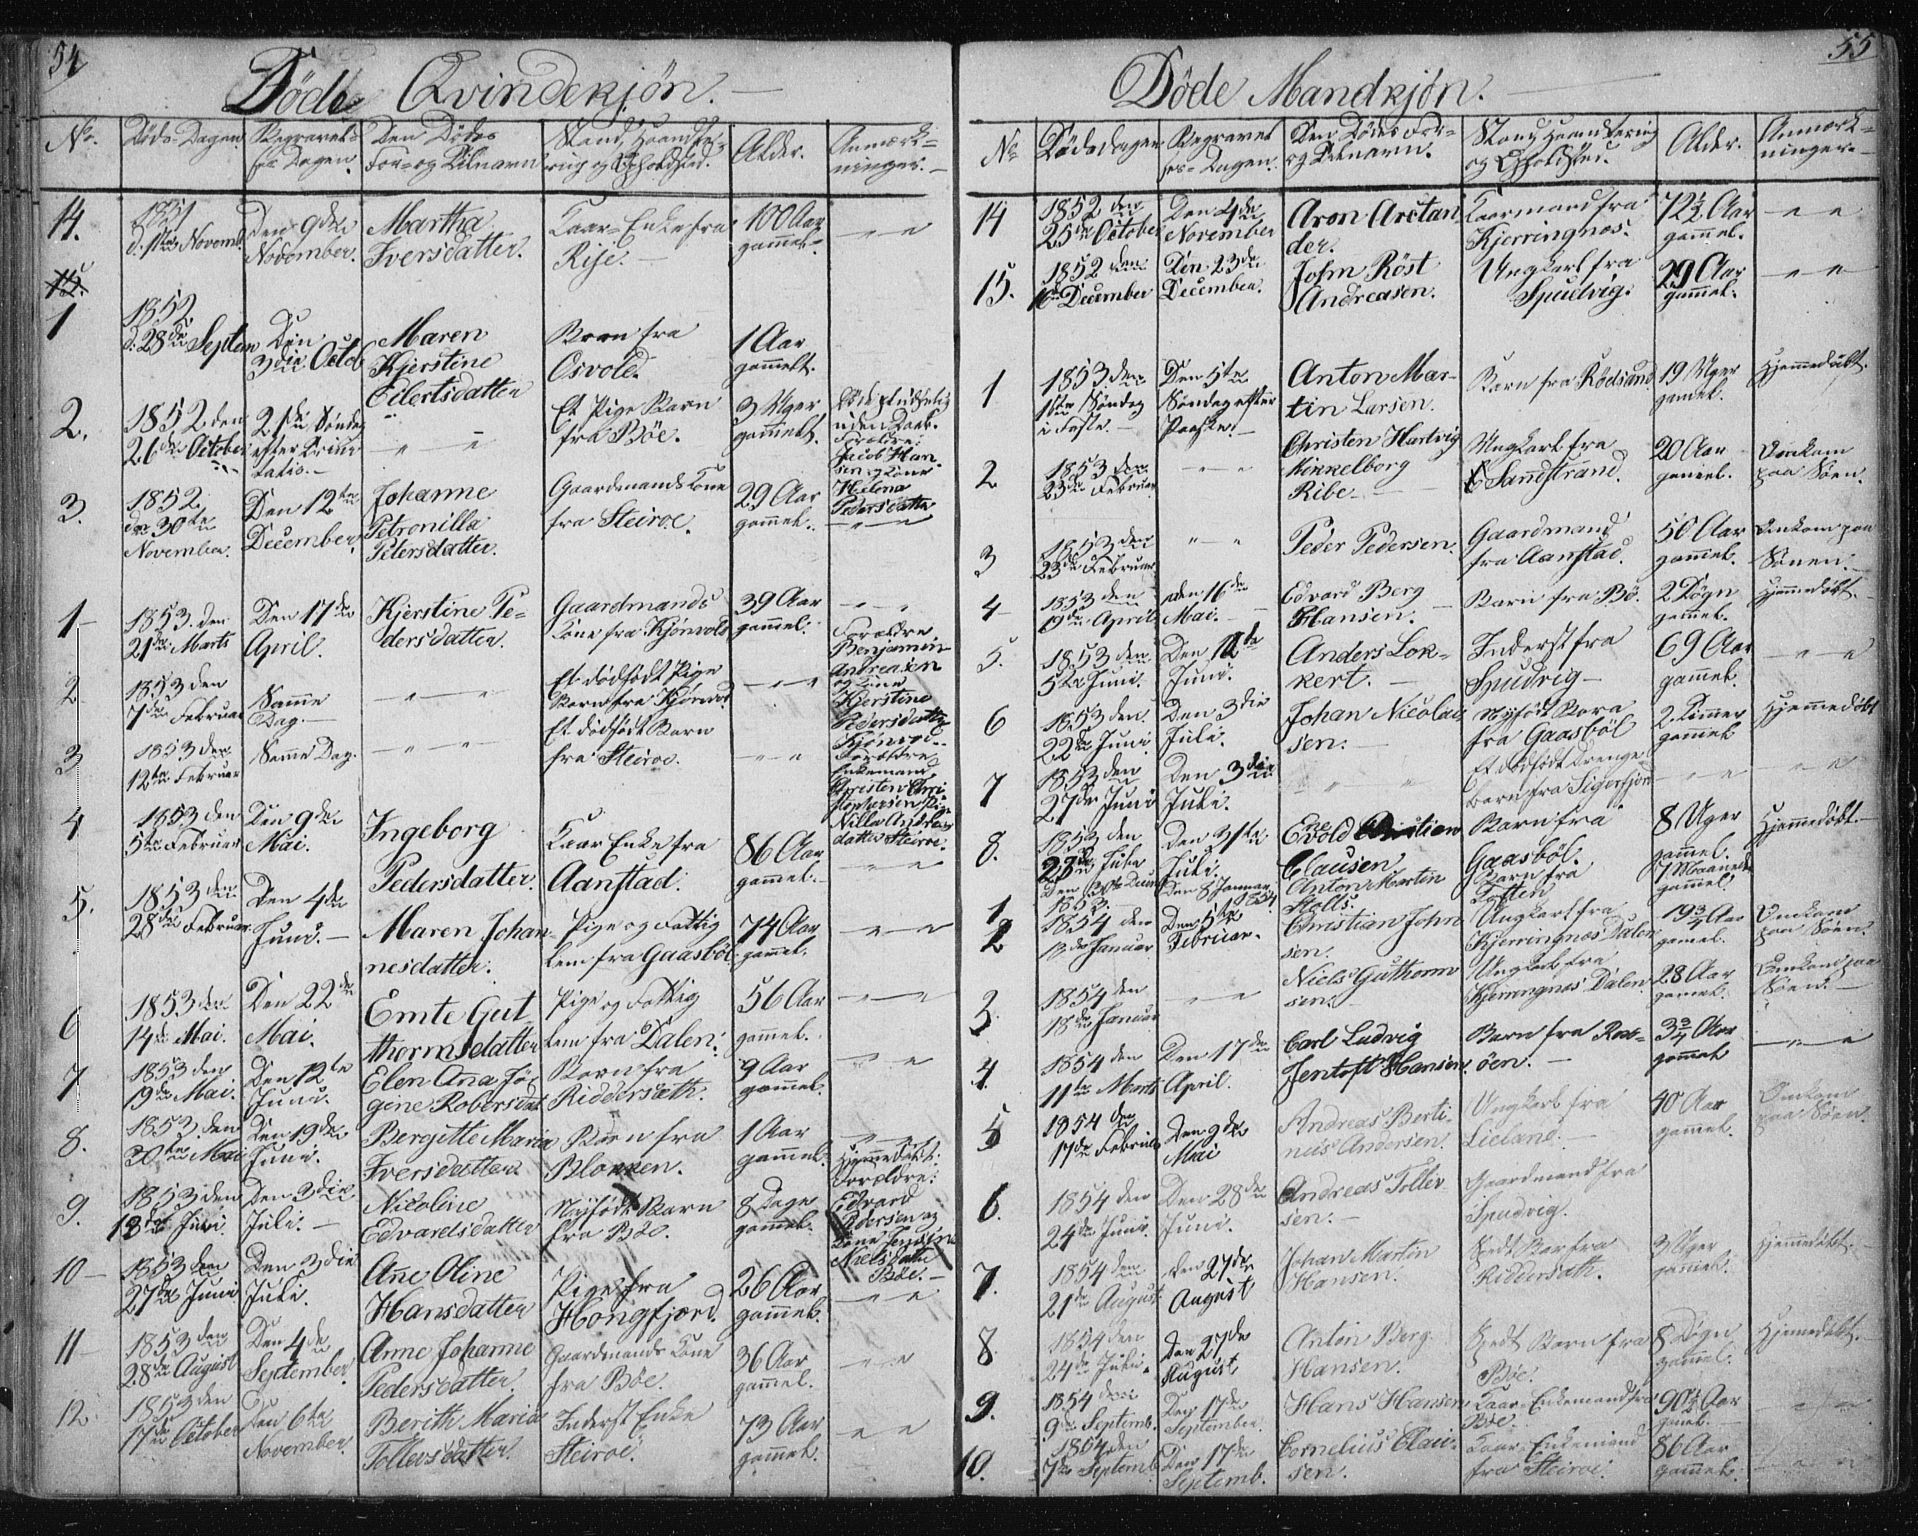 54
Döde Qvindekjön.
No. Döds-Dagen Begravel- Den Dödes Stand, Haandte- Alder. Anmærk-
ses Dagen. For- og Tilnavn ring og Opholdsted. ninger.
14. 1851 Den 9de Martha Kaar-Enke fra 100 Aar
d. 1ste Novemb. November. Iversdatter. Rise. gammel.
15.
1 1852. Den Maren Barn fra 1 Aar
d. 28de Septem 3die Octob Kjerstine Osvold. gammelt.
Eilertsdatter
2. 1852 den 21de Söndag Et Pige Barn 3 Uger
26de October efter Trini fra Böe. gammelt.
tatis. uden Daab.
Forældre:
Jacob Han-
sen og Kone
Helena
Pedersdatter
3. 1852. Den 12te Johanne Gaardmands Kone 29 Aar
den 30te December. Petronilla fra Steiroe. gammel.
November. Petersdatter.
1 1853. den Den 17de Kjerstine Pe- Gaardmands 39 Aar
21de Marts April. dersdatter. Kone fra Kjönvold gammel.
2 1853 den Samme Et dödfödt Pige
7de Februar Dag. Barn fra Kjönvold
Forældre
Benjamin
Andreasen
og Kone
Kjerstine
Pedersdatter
Kjönvold.
3 1853 den Samme Dag. Et dödfödt Barn
12te Februar fra Steiroe.
Forældre
Enkemand
Christen Chri-
stophersen
datter Steiroe.
4 1853 den Den 9de Ingeborg Kaar Enke fra 86 Aar
5te Februar Mai. Pedersdatter. Aanstad. gammel.
5. 1853 den Den 4de Maren Johan- Pige og Fattig 74 Aar
28de Februar Juni. nesdatter. Lem fra Gaasböl gammel.
6 1853 den Den 22de Emte Gut- Pige og Fattig 56 Aar
14de Mai. Mai. thormsdatter Lem fra Dalen. gammel.
7 1853 den Den 12te Elen Ana Jör- Barn fra 9 Aar
19de Mai. Juni. gine Robersdat Riddersæth. gammel.
8. 1853. den Den 19de Bergitte Maria Barn fra 1 Aar
30te Mai Juni. Iversdatter Blokken. gammel.
9. 1853 den Den 3die Nicoline Nyfödt Barn 8 Dage
13de Juni. Juli. Edvardsdatter fra Böe. gammel.
Hjemmedöbt.
Forældre:
Edvard
Pedersen og
Kone
Nielsdatter
Böe.
10 1853 den Den 3die Ane Oline Pige fra 26 Aar
27de Juni Juli. Hansdatter Hongfjord. gammel.
11 1853 den Den 4de Anne Johanne Gaardmands Kone 36 Aar
28de August September. Pedersdatter. fra Böe. gammel.
12. 1853 den Den 6te Berith Maria Inderst Enke 73 Aar
17de October November. Tollevsdatter. Steiroe. gammel.
55
Döde Mandkjön.
No Dödsdagen Begravel Den Dödes For- Stand, Haandtering Alder. Anmærk-
ses-Dagen. og Tilnavn. og Opholdsted. ninger.
14 1852 den Den 4de Aron Arctan Kaarmand fra 72½ Aar
25de October November der. Kjerringnæs. gammel.
15. 1852 den Den 23de John Röst Ungkarl fra 29 Aar
16de December December. Andreasen. Spudvig. gammel.
1 1853 den Den 5te Anton Mar- Barn fra Rödsand 19 Uger Hjemmedöbt.
1ste Söndag Söndag efter tin Larsen. gammel.
i Faste. Paaske.
2 1853 den Christen Hartvig Ungkarl fra 20 Aar Omkom
23de Februar Kinkelborg Sandstrand. gammel. paa Söen.
Ribe.
3 1853 den Peder Pedersen. Gaardmand 50 Aar Omkom paa
23de Februar fra Aanstad. gammel. Söen.
4 1853 den den 16de Edvard Berg Barn fra Bö. 2 Dögn Hjemmedöbt.
19de April Mai. Hansen. gammel.
5. 1853 den Den 12te Anders Lok- Inderst fra 69 Aar
5te Juni. Juni. kert. Spudvig gammel.
6 1853 den Den 3die Johan Nicolai Nyfödt Barn 2 Timer Hjemmedöbt
22de Juni. Juli. sen. fra Gaasböl gammel
7 1853 den Den 3die Et dödfödt Drenge
27de Juni Juli. Barn fra Sigerfjord
8. 1853 den Den 31te Evold Christian Barn fra 8 Uger Hjemmedöbt.
Juli. Clausen Gaasböl. gammel.
1. Den 30te Decem Den 8 Januar Anton Martin Barn fra 7 Maaneder
1853. 1854. Holls. gammel
2 1854 den Den 5te Christian John Ungkarl fra 19¾ Aar Omkom
13de Januar Februar. sen. Kjerringnæs Dalen gammel. paa Söen.
3. 1854 den Niels Guthorm Ungkarl fra 28 Aar Omkom paa
18de Januar sen. Kjerringnæs Dalen gammel. Söen.
4 1854 den Den 17de Carl Ludvig Barn fra 3¾ Aar
11te Marts April. Jentoft Hansen. öen. gammel
5 1854 den Den 9de Andreas Berti- Ungkarl fra 40 Aar Omkom
17de Februar Mai nius Andersen. Lieland. gammel. paa Söen.
6. 1854 den Den 28de Andreas Tollev- Gaardmand fra
24de Juni. Juni. sen. Spudvig.
7. 1854 den den 27de Johan Martin Spedt Barn fra 3 Uger Hjemmedöbt.
21de August August Hansen. Riddersæth. gammel.
8. 1854 den Den 27de Anton Berg Spedt Barn fra 8 Dögn Hjemmedöbt.
24de Juli. August Hansen. Böe. gammel.
9. 1854 den Den 17de Hans Hansen Kaar-Enkemand fra 90½ Aar
9de Septemb. September. Böe. gammel.
10. 1854 den Den 17de Cornelius Clau- Kaar-Enkemand 86 Aar
7de Septemb Septemb. sen. fra Steiroe. gammel.